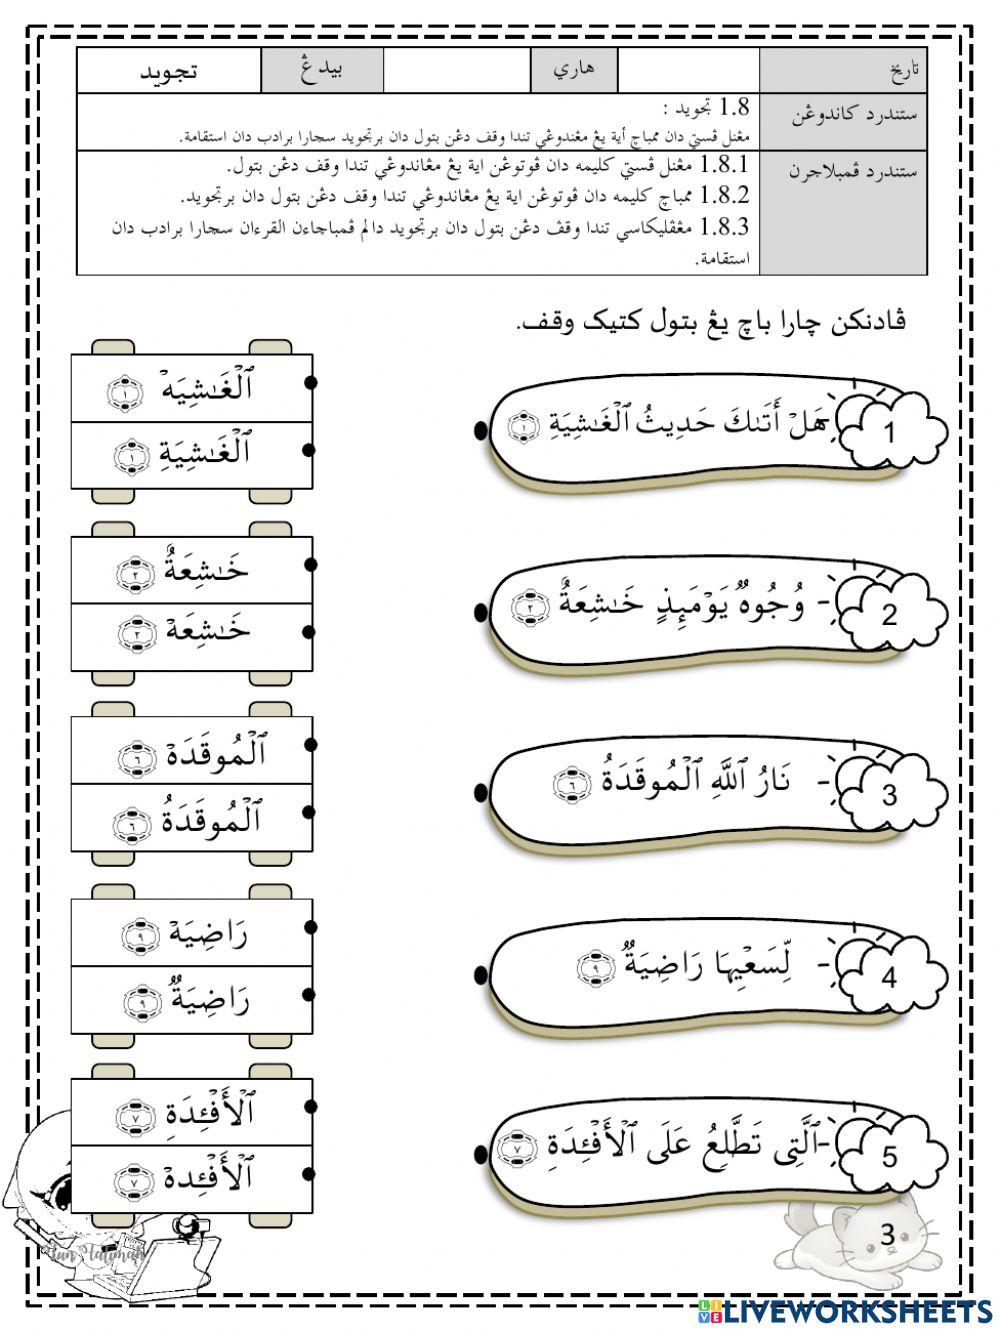 تاريخ
هاري
بيدڠ
تجويد
ستندرد كاندوڠن
1.8 تجويد :
مڠنل ڤستي دان ممباچ أية يڠ مڠندوڠي تندا وقف دڠن بتول دان برتجويد سچارا برادب دان استقامة.
ستندرد ڤمبلاجرن
1.8.1 مڠنل ڤستي كليمه دان ڤوتوڠن اية يڠ مڠاندوڠي تندا وقف دڠن بتول.
1.8.2 ممباچ كليمه دان ڤوتوڠن اية يڠ مڠاندوڠي تندا وقف دڠن بتول دان برتجويد.
1.8.3 مڠڤليكاسي تندا وقف دڠن بتول دان برتجويد دالم ڤمباچاءن القرءان سچارا برادب دان
استقامة.
ڤادنكن چارا باچ يڠ بتول كتيک وقف.
1
هَلْ أَتَىٰكَ حَدِيثُ ٱلْغَـٰشِيَةِ ١
ٱلْغَـٰشِيَهْ ١
ٱلْغَـٰشِيَةِ ١
2
- وُجُوهٌ يَوْمَئِذٍ خَـٰشِعَةٌ ٢
خَـٰشِعَةٌ ٢
خَـٰشِعَهْ ٢
3
- نَارُ ٱللَّهِ ٱلْمُوقَدَةُ ٦
ٱلْمُوقَدَهْ ٦
ٱلْمُوقَدَةُ ٦
4
- لِّسَعْيِهَا رَاضِيَةٌ ٩
رَاضِيَهْ ٩
رَاضِيَةٌ ٩
5
-ٱلَّتِى تَطَّلِعُ عَلَى ٱلْأَفْـِٔدَةِ ٧
ٱلْأَفْـِٔدَةِ ٧
ٱلْأَفْـِٔدَهْ ٧
3
LIVEWORKSHEETS